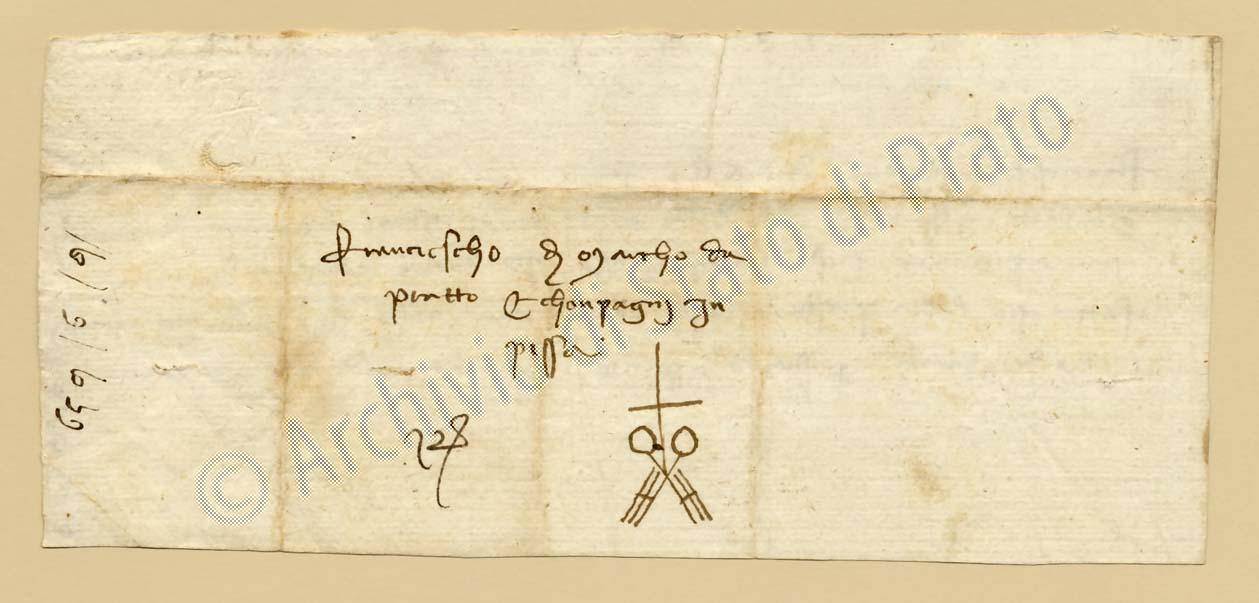 Francischo di Marcho da
pratto E chonpagni in
pissa
© Archivio di Stato di Prato